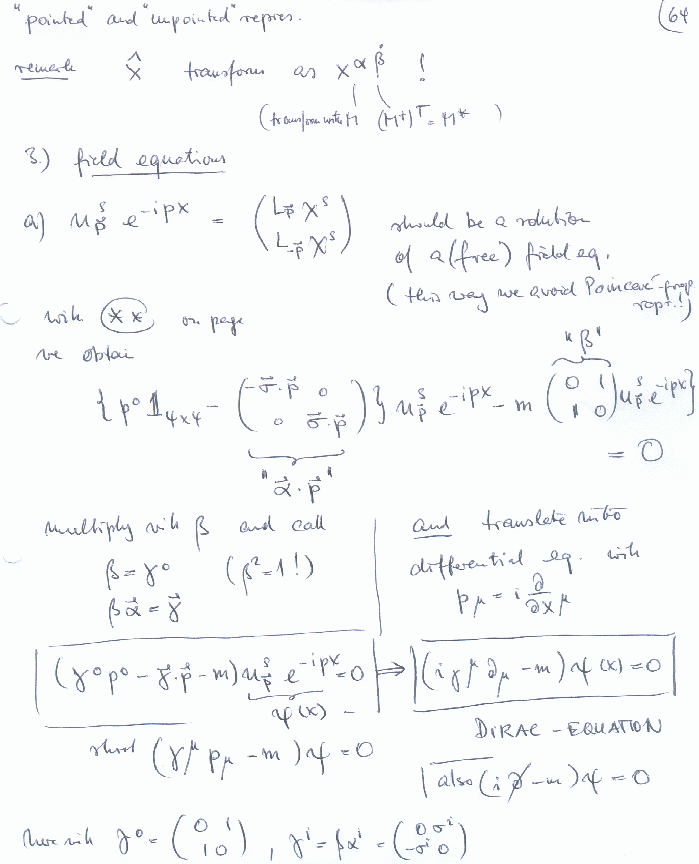 "pointed" and "unpointed" repres. (64
remark x̂ transforms as x^{α β̇} !
(transform with M (M†)^T = M* )
3.) field equations
a) u_{p⃗}^s e^{-ipx} = ( L_{p⃗} χ^s ; L_{-p⃗} χ^s ) should be a solution
of a (free) field eq.
(this way we avoid Poincaré-grop
with (**) on page
we obtai
"β"
{ p⁰ 𝟙_{4x4} - ( -σ⃗·p⃗ 0 ; 0 σ⃗·p⃗ ) } u_{p⃗}^s e^{-ipx} - m ( 0 1 ; 1 0 ) u_{p⃗}^s e^{-ipx} }
= 0
"α⃗·p⃗"
multiply with β and call
β = γ⁰ (β² = 1!)
βα⃗ = γ⃗
and translate into
differential eq. with
p_μ = i ∂/∂x^μ
(γ⁰p⁰ - γ⃗·p⃗ - m) u_{p⃗}^s e^{-ipx} = 0 ⇒ (iγ^μ ∂_μ - m) ψ(x) = 0
ψ(x)
DIRAC-EQUATION
short (γ^μ p_μ - m) ψ = 0
also (i ∂̸ - m) ψ = 0
here with γ⁰ = ( 0 1 ; 1 0 ) , γ^i = βα^i = ( 0 σ^i ; -σ^i 0 )